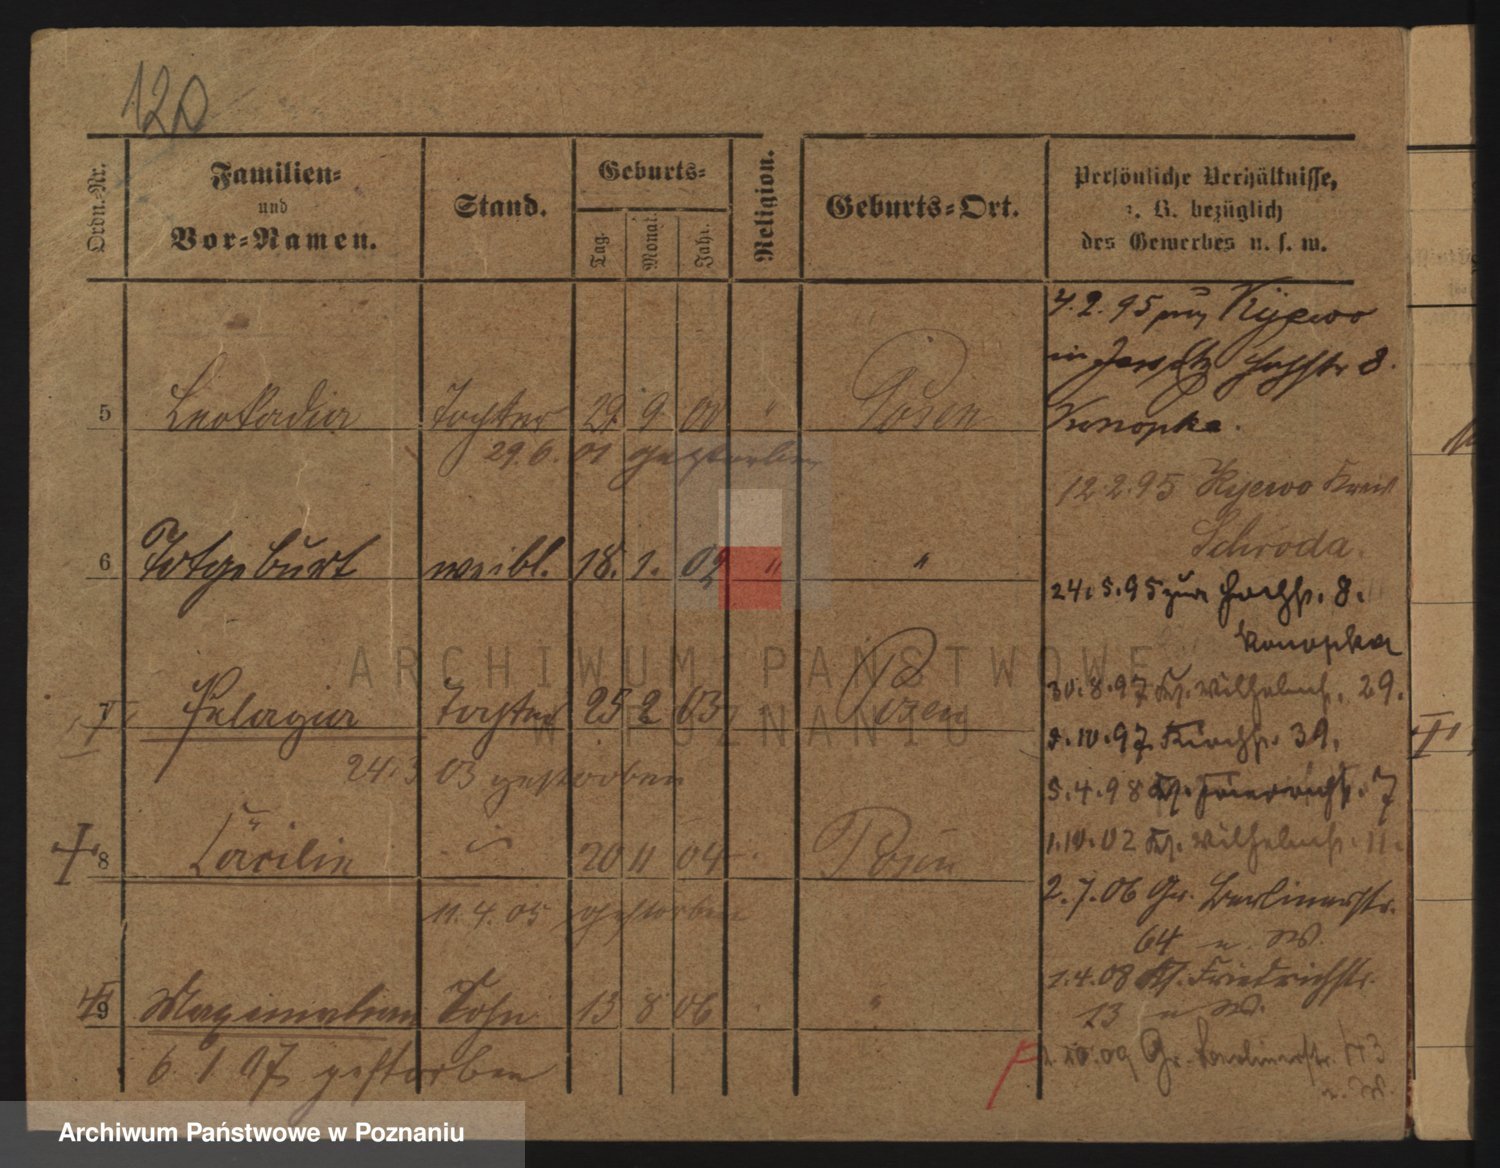 120
Ordn.-Nr.
Familien-
und
Vor-Namen.
Stand.
Geburts-
Tag.
Monat.
Jahr.
Religion.
Geburts-Ort.
Persönliche Verhältnisse,
z. B. bezüglich
des Gewerbes u. s. w.
5 Leokadia Tochter 29 9 00 " Posen
29.6.01 gestorben
6 Totgeburt weibl. 18. 1. 02 " "
7 Pelagia Tochter 25 2 03 Posen
24.3 03 gestorben
8 Cäcilie 20 11 04 Posen
11.4.05 gestorben
9 Maximilian Sohn 13 8 06 "
6 1 07 gestorben
4.2.95 Kijewo
in Jersitz Hochstr 8.
Konopka.
12.2.95 Kijewo Kreis
Schroda.
24.5.95 zur Hochstr. 8.
Konopka
30.8.97 Kl. Wilhelmstr. 29.
8.10.97 Kirchstr. 39.
5.4.98 Friedrichstr. 7
1.10.02 Kl. Wilhelmstr. 11.
2.7.06 Gr. Berlinerstr.
64 u. W.
1.4.08 Kl. Friedrichstr.
13 u W.
10.09 Gr. Berlinerstr.
u. W.
ARCHIWUM PAŃSTWOWE
W POZNANIU
Archiwum Państwowe w Poznaniu